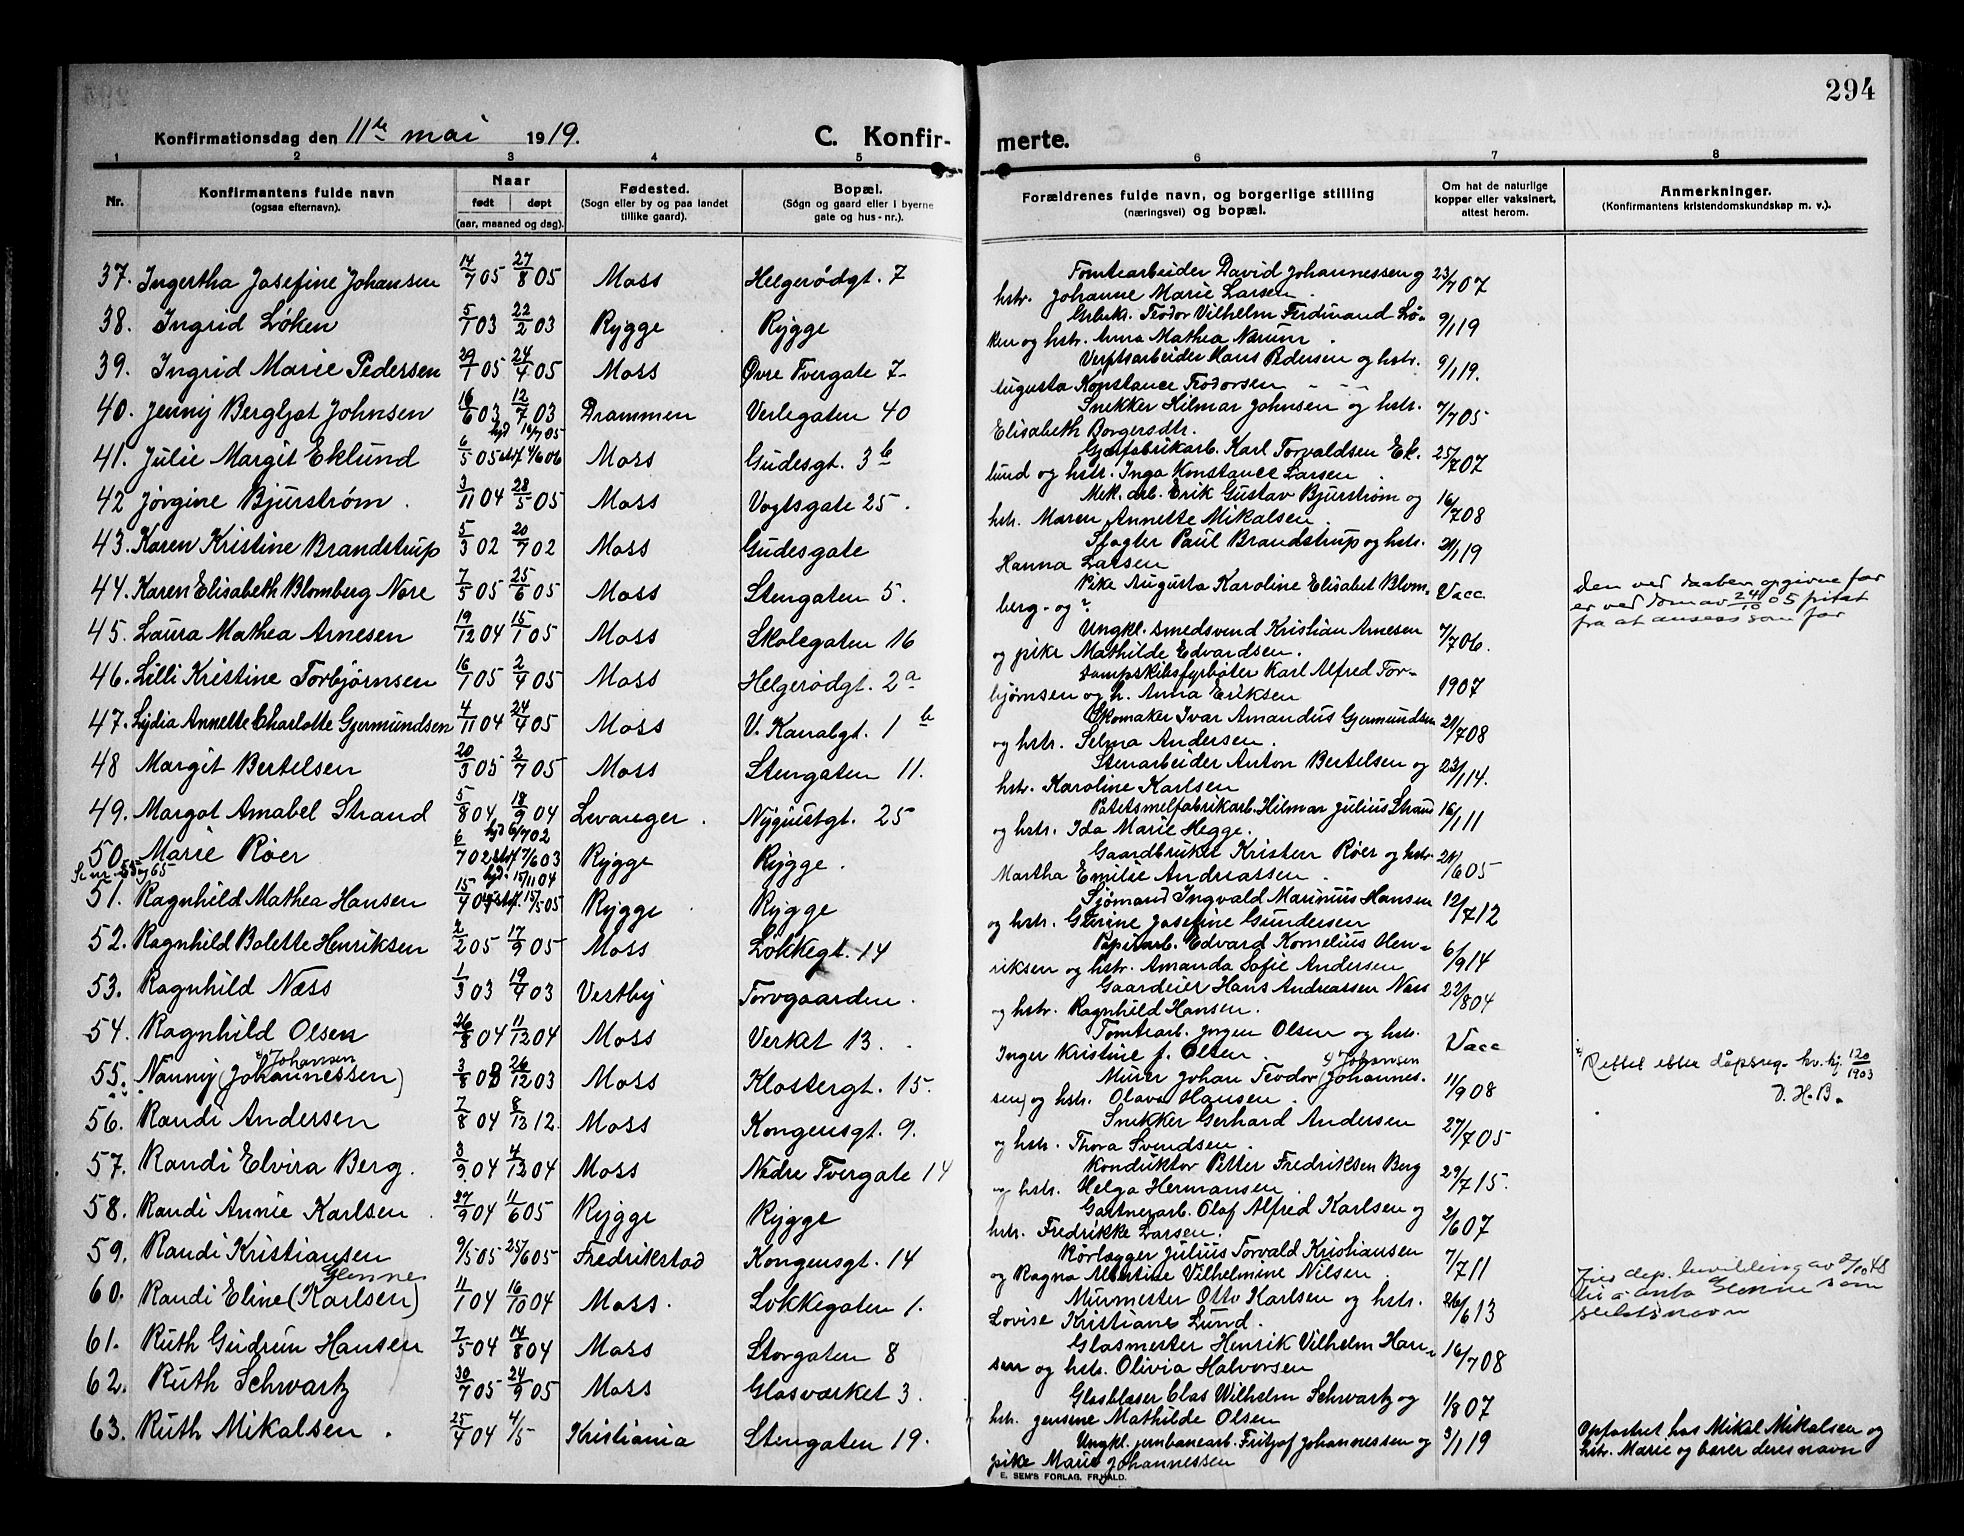 294
Konfirmationsdag den 11te mai 1919.
C. Konfir-
merte.
1 2 3 4 5 6 7 8
Nr.
Konfirmantens fulde navn
(ogsaa efternavn).
Naar
født døpt
(aar, maaned og dag).
Fødested.
(Sogn eller by og paa landet
tillike gaard).
Bopæl.
(Sogn og gaard eller i byerne
gate og hus-nr.).
Forældrenes fulde navn, og borgerlige stilling
(næringsvei) og bopæl.
Om hat de naturlige
kopper eller vaksinert,
attest herom.
Anmerkninger.
(Konfirmantens kristendomskundskap m. v.).
37. Ingertha Josefine Johansen 14/7 05 27/8 05 Moss Helgerødgt. 7
Tomtearbeider David Johannessen og 23/7 07
hstr. Johanne Marie Larsen.
38. Ingrid Løken 5/1 03 22/2 03 Rygge Rygge
Grbrk. Teodor Vilhelm Ferdinand Lø- 9/1 19
ken og hstr. Anna Mathea Nærum.
39. Ingrid Marie Pedersen 29/1 05 24/4 05 Moss Øvre Tvergate 7-
Verftsarbeider Hans Pedersen og hstr. 9/1 19.
Augusta Konstance Teodorsen
40. Jenny Bergljot Johnsen 16/6 03 12/7 03 Drammen Verlegaten 40
Snekker Hilmar Johnsen og hstr. 7/7 05
Elisabeth Borgersdtr.
41. Julie Margit Eklund 6/5 05 hjd 16/7 05 stf 4/6 06 Moss Gudesgt. 3b
Gjærfabrikarb. Karl Torvaldsen Ek- 25/7 07
lund og hstr. Inga Konstance Larsen.
42 Jørgine Bjurstrøm. 3/11 04 28/5 05 Moss Vogtsgate 25.
Mek. arb. Erik Gustav Bjurstrøm og 16/7 08
hstr. Maren Annette Mikalsen.
43. Karen Kristine Brandstrup 5/3 02 20/7 02 Moss Gudesgate
Slagter Paul Brandstrup og hstr. 21/1 19
Hanna Larsen
44. Karen Elisabeth Blomberg Nore 7/5 05 25/6 05 Moss Stengaten 5.
Pike Augusta Karoline Elisabet Blom- Vacc
berg- og ?
Den ved daaben opgivne far
er ved dom av 24/10 05 fritat
fra at ansees som far
45. Laura Mathea Arnesen 19/12 04 15/1 05 Moss Skolegaten 16
Ungkl. smedsvend Kristian Arnesen 7/7 06.
og pike Mathilde Edvardsen.
46. Lilli Kristine Torbjørnsen 16/1 05 2/4 05 Moss Helgerødgt. 2a
Dampskibsfyrbøter Karl Alfred Tor- 1907
bjørnsen og h. Anna Eriksen
47. Lydia Annette Charlotte Gjermundsen 4/11 04 24/4 05 Moss V. Kanalgt. 1b
Skomaker Ivar Amandus Gjermundsen 21/7 08
og hstr. Selma Andersen.
48 Margit Bertelsen 20/3 05 2/7 05 Moss Stengaten 11.
Stenarbeider Anton Bertelsen og 23/1 14.
hstr. Karoline Karlsen
49. Margot Amabel Strand 5/8 04 18/9 04 Levanger. Nyquistgt. 25
Potetmelfabrikarb. Hilmar Julius Strand 16/1 11
og hstr. Ida Marie Hegge.
50. Marie Røer 6/7 02 hjd 6/7 02 stf 7/6 03 Rygge Rygge.
Gaardbruker Kristen Røer og hstr. 21/6 05
Martha Emilie Andreassen.
Se nr 55 og 65
51. Ragnhild Mathea Hansen 15/4 04 hjd. 15/11 04 stf. 15/5 05 Rygge Rygge
Sjømand Ingvald Marinius Hansen 12/7 12
og hstr. Glorine Josefine Gundersen
52. Ragnhild Bolette Henriksen 2/2 05 17/9 05 Moss Løkkegt. 14
Papirarb. Edvard Kornelius Hen- 6/9 14
riksen og hstr. Amanda Sofie Andersen
53. Ragnhild Næss 1/3 03 19/4 03 Vestby Torvgaarden.
Gaardeier Hans Andreassen Næss 22/8 04
og hstr. Ragnhild Hansen.
54. Ragnhild Olsen 26/8 04 11/12 04 Moss Verket 13.
Tomtearb. Jørgen Olsen og hstr. Vacc
Inger Kristine f. Olsen.
55. Nanny (Johannessen) x) Johansen 3/8 03 26/12 03 Moss Klostergt. 15.
Murer Johan Teodor (Johannes- x) Johansen 11/9 08
sen) og hstr. Olava Hansen.
x) Rettet efter dåpsreg. hv. hj. 120/1903
D. H. B.
56. Randi Andersen 7/8 04 8/12 12. Moss Kongensgt. 9.
Snekker Gerhard Andersen 27/7 05
og hstr. Thora Svendsen.
57. Randi Elvira Berg. 3/9 04 4/12 04 Moss Nedre Tvergate 14
Konduktør Petter Fredriksen Berg 29/7 15.
og hstr. Helga Hermansen.
58. Randi Annie Karlsen 27/9 04 11/6 05 Rygge Rygge
Gartnerarb. Olaf Alfred Karlsen og 2/6 07
hstr. Fredrikke Larsen.
59. Randi Kristiansen 9/5 05 25/6 05 Fredrikstad Kongensgt. 14
Rørlægger Julius Torvald Kristiansen 7/7 11
og Ragna Albertine Vilhelmine Nilsen.
60. Randi Eline (Karlsen) Glenne 11/1 04 16/10 04 Moss. Løkkegaten 1.
Murmester Otto Karlsen og hstr. 26/6 13
Lovise Kristiane Lund.
dep. bevilling av 48
til å anta Glenne som
slektsnavn
61. Ruth Gudrun Hansen 7/5 04 14/8 04 Moss Storgaten 8
Glasmester Henrik Vilhelm Han- 16/7 08
sen og hstr. Olivia Halvorsen
62. Ruth Schwartz 30/7 05 24/9 05 Moss Glasværket 3.
Glasblæser Clas Wilhelm Schwartz og 1/8 07
hstr. Jensine Mathilde Olsen
63. Ruth Mikalsen. 25/4 04 4/5 Kristiania Stengaten 19.
Ungkl. jernbanearb. Fritjof Johannessen og 3/1 19
pike Marie Johannessen
Opfostret hos Mikal Mikalsen og
hstr. Marie og bærer deres navn
E. SEM'S FORLAG, FR.HALD.